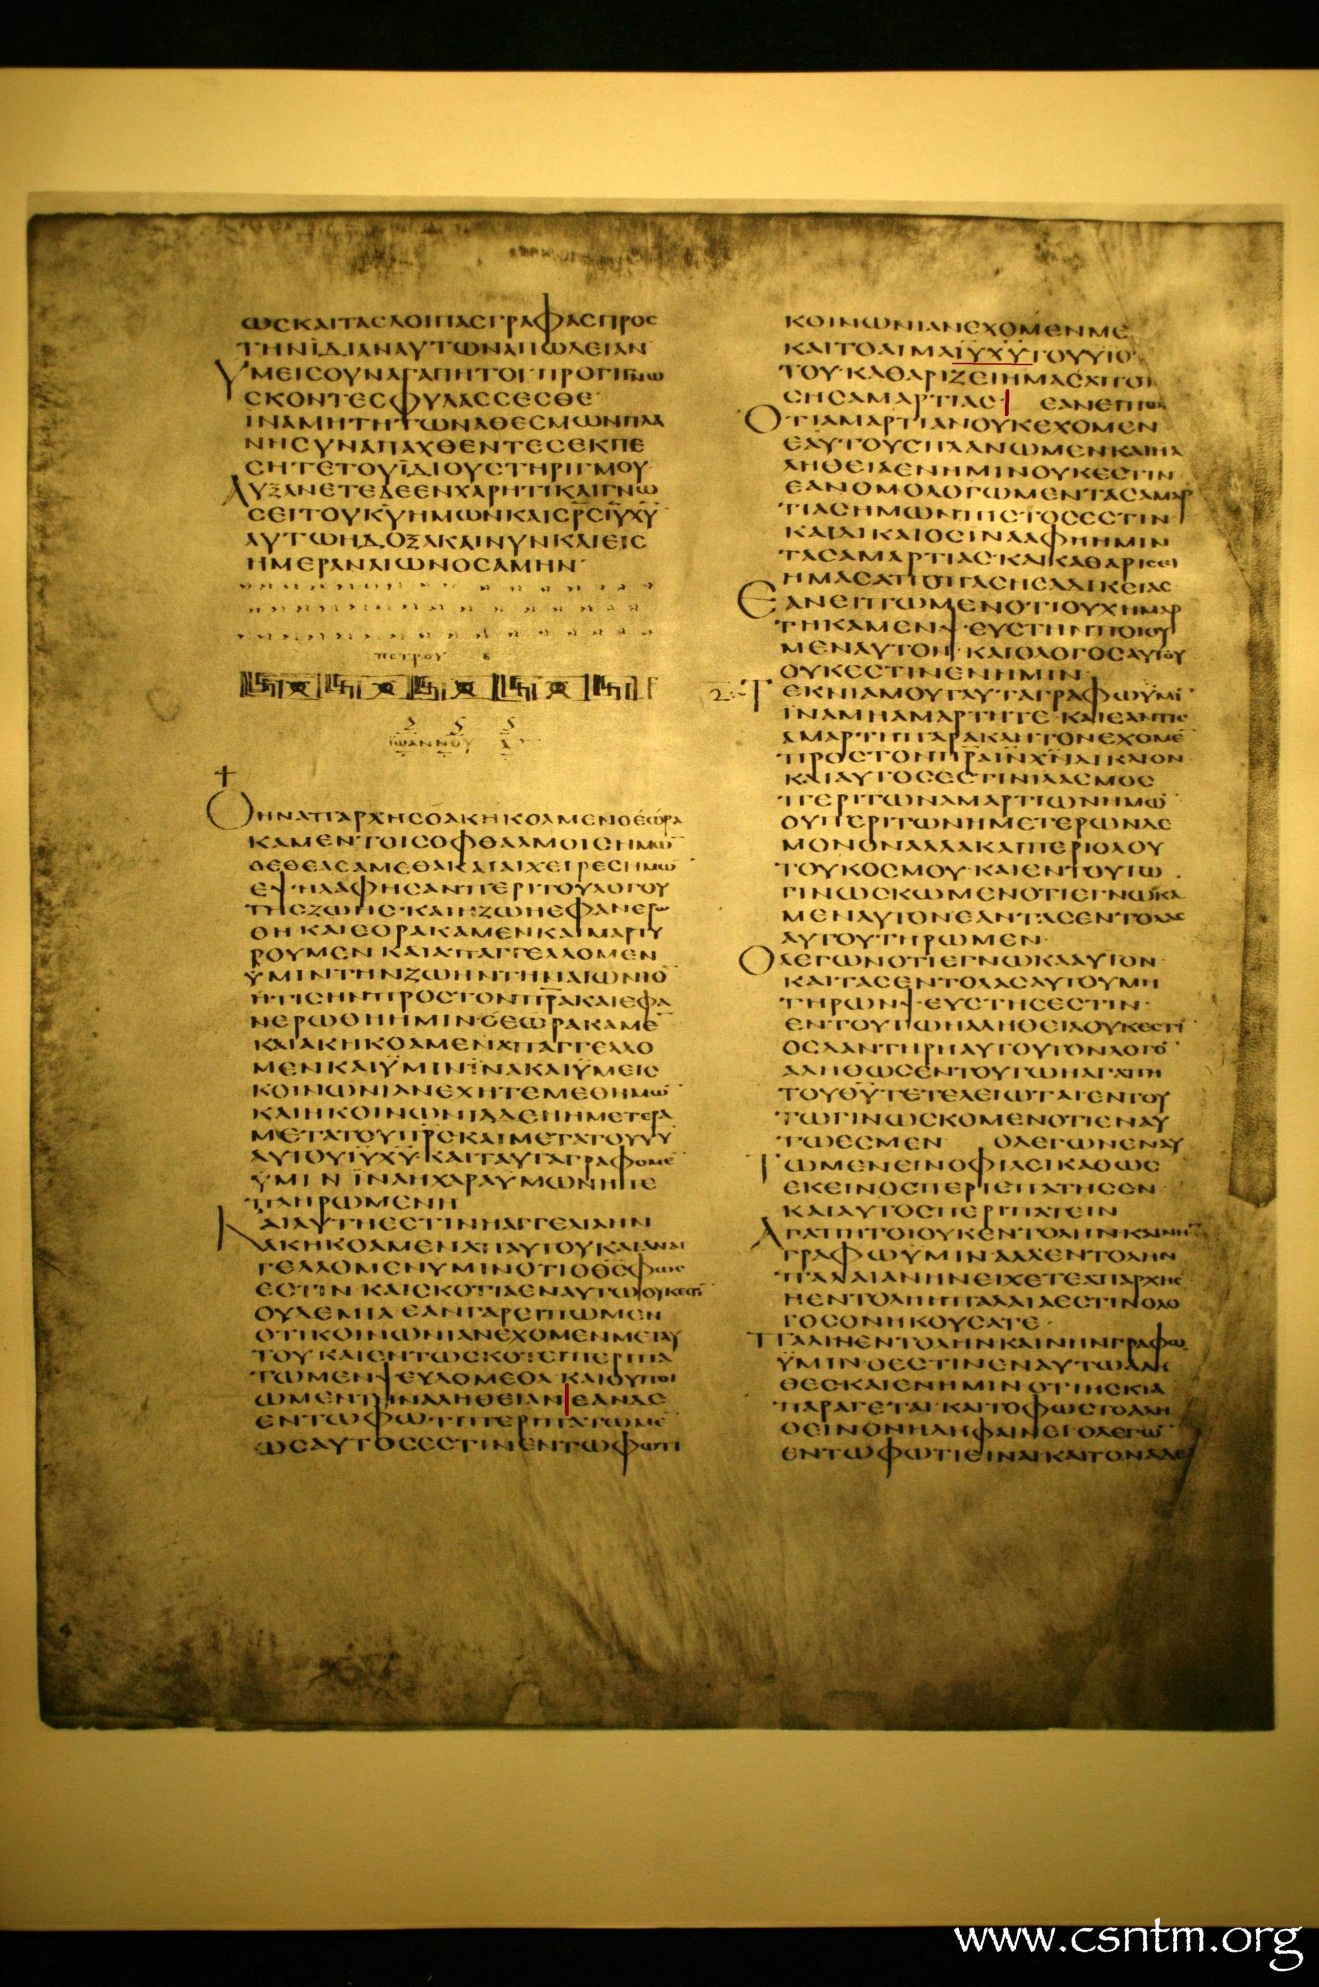 ωσκαιτασλοιπασγραφασπροσ
τηνιδιαναυτωναπωλειαν
Υμεισουναγαπητοι·προγινω
σκοντεσφυλασσεσθε·
ιναμητητωναθεσμωνπλα
νησυναπαχθεντεσεκπε
σητετουϊδιουστηριγμου·
Αυξανετεδεενχαρητικαιγνω
σειτουκ̅υ̅ημωνκαισ̅ρ̅σι̅υ̅χ̅υ̅
αυτωηδοξακαινυνκαιεισ
ημεραναιωνοσαμην·
πετρου β
ιωαννου α
Οηναπαρχησοακηκοαμενοεωρα
καμεντοισοφθαλμοισημω̅
οεθεασαμεθακαιαιχειρεσημω̅
εψηλαφησανπεριτουλογου
τησζωησ·καιηζωηεφανερω
θηκαιεορακαμενκαιμαρτυ
ρουμενκαιαπαγγελλομεν
ϋμιντηνζωηντηναιωνιο̅
ητισηνπροστονπ̅ρ̅ακαιεφα
νερωθηημινοεωρακαμε̅
καιακηκοαμεναπαγγελλο
μενκαιϋμινϊνακαιϋμεισ
κοινωνιανεχητεμεθημω̅
καιηκοινωνιαδεημετερα
μετατουπ̅ρ̅σκαιμετατουυ̅υ̅
αυτουι̅υ̅χ̅υ̅·καιταυταγραφομε̅
ϋμινϊναηχαραυμωνηπε
πληρωμενη
Καιαυτηεστινηαγγελιαην
ακηκοαμεναπαυτουκαιαναγ
γελλομενυμινοτιοθ̅σ̅φωσ
εστινκαισκοτιαεναυτωουκεστι̅
ουδεμιαεανγαρειπωμεν
οτικοινωνιανεχομενμεταυ
τουκαιεντωσκοτειπεριπα
τωμενψευδομεθακαιουποι
ωμεντηναληθειανεανδε
εντωφωτιπεριπατωμε̅
ωσαυτοσεστινεντωφωτι
κοινωνιανεχομενμε
καιτοαιμαι̅υ̅χ̅υ̅τουυιο
του·καθαριζειημασαποπα
σησαμαρτιασ· εανειπωμε
Οτιαμαρτιανουκεχομεν
εαυτουσπλανωμενκαιηα
ληθειαενημινουκεστιν
εανομολογωμεντασαμαρ
τιασημωνπιστοσεστιν
καιδικαιοσιναφηημιν
τασαμαρτιασ·καικαθαρισει
ημασαποπασησαδικειασ
Εανειπωμενοτιουχημαρ
τηκαμενψευστηνποιου
μεναυτον·καιολογοσαυτου
ουκεστινενημιν
Τεκνιαμουταυταγραφωϋμι̅
ϊναμηαμαρτητε·καιεαντισ
αμαρτηπαρακλητονεχομε̅
προστονπ̅ρ̅αι̅ν̅χ̅ν̅δικαιον
καιαυτοσεστινιλασμοσ
περιτωναμαρτιωνημω̅
ουπεριτωνημετερωνδε
μονοναλλακαιπεριολου
τουκοσμου·καιεντουτω
γινωσκωμενοτιεγνωκα
μεναυτονεαντασεντολασ
αυτουτηρωμεν
Ολεγωνοτιεγνωκααυτον
καιτασεντολασαυτουμη
τηρωνψευστησεστιν
εντουτωηαληθειαουκεστι̅
οσδαντηρηαυτουτονλογο̅
αληθωσεντουτωηαγαπη
τουθ̅υ̅τετελειωται·εντου
τωγινωσκομενοτιεναυ
τωεσμεν ολεγωνεναυ
Τωμενεινοφιλεικαθωσ
εκεινοσπεριεπατησεν
καιαυτοσπεριπατειν
Αγαπητοιουκεντολην καινην
γραφωϋμιναλλεντολην
παλαιανηνειχετεαπαρχησ
ηεντοληηπαλαιαεστινολο
γοσονηκουσατε·
Παλινεντοληνκαινηνγραφω
ϋμινοεστινεναυτωαλη
θεσκαιενημινοτιησκια
παραγεται·καιτοφωστοαλη
θεινονηδηφαινειολεγω̅
εντωφωτιειναικαιτοναδελ
www.csntm.org